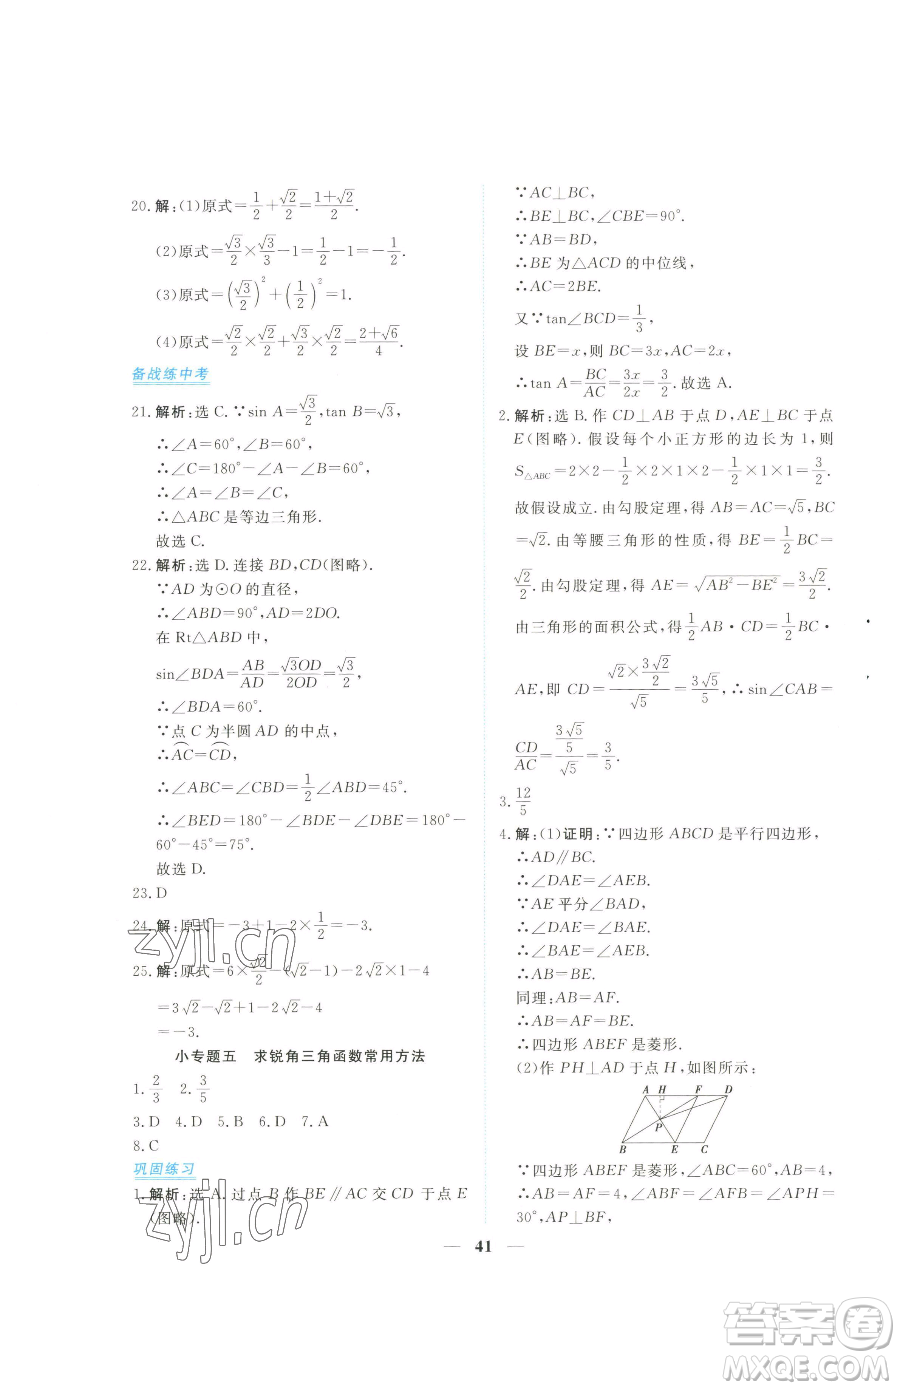 20. 解:(1)原式=1/2+√2/2=(1+√2)/2.
(2)原式=√3/2×√3/3-1=1/2-1=-1/2.
(3)原式=(√3/2)²+(1/2)²=1.
(4)原式=√2/2×√2/2+√3/2×√2/2=(2+√6)/4.
备战练中考
21. 解析:选 C.∵sin A=√3/2,tan B=√3,
∴∠A=60°,∠B=60°.
∴∠C=180°-∠A-∠B=60°.
∴△ABC 是等边三角形.
故选 C.
22. 解析:选 D.连接 BD,CD(图略).
∵AD 为⊙O 的直径,
∴∠ABD=90°,AD=2DO.
在 Rt△ABD 中,
sin∠BDA=AB/AD=√3OD/2OD=√3/2,
∴∠BDA=60°.
∵点 C 为半圆 AD 的中点,
∴⌒AC=⌒CD,
∴∠ABC=∠CBD=1/2∠ABD=45°.
∴∠BED=180°-∠BDE-∠DBE=180°-
60°-45°=75°.
故选 D.
23. D
24. 解:原式=-3+1-2×1/2=-3.
25. 解:原式=6×√2/2-(√2-1)-2√2×1-4
=3√2-√2+1-2√2-4
=-3.
小专题五 求锐角三角函数常用方法
1. 2/3 2. 3/5
3. D 4. D 5. B 6. D 7. A
8. C
巩固练习
1. 解析:选 A.过点 B 作 BE∥AC 交 CD 于点 E
(图略).
∵AC⊥BC,
∴BE⊥BC,∠CBE=90°.
∵AB=BD,
∴BE 为△ACD 的中位线,
∴AC=2BE.
又∵tan∠BCD=1/3,
设 BE=x,则 BC=3x,AC=2x,
∴tan A=BC/AC=3x/2x=3/2.故选 A.
2. 解析:选 B.作 CD⊥AB 于点 D,AE⊥BC 于点
E(图略).假设每个小正方形的边长为 1,则
S△ABC=2×2-1/2×2×1×2-1/2×1×1=3/2.
故假设成立.由勾股定理,得 AB=AC=√5,BC
=√2.由等腰三角形的性质,得 BE=1/2BC=
√2/2.由勾股定理,得 AE=√(AB²-BE²)=3√2/2.
由三角形的面积公式,得1/2AB·CD=1/2BC·
AE,即 CD=(√2×3√2/2)/√5=3√5/5,∴sin∠CAB=
CD/AC=(3√5/5)/√5=3/5.
3. 12/5
4. 解:(1)证明:∵四边形 ABCD 是平行四边形,
∴AD∥BC.
∴∠DAE=∠AEB.
∵AE 平分∠BAD,
∴∠DAE=∠BAE.
∴∠BAE=∠AEB.
∴AB=BE.
同理:AB=AF.
∴AB=AF=BE.
∴四边形 ABEF 是菱形.
(2)作 PH⊥AD 于点 H,如图所示:
A H F D
P
B E C
∵四边形 ABEF 是菱形,∠ABC=60°,AB=4,
∴AB=AF=4,∠ABF=∠AFB=∠APH=
30°,AP⊥BF,
41
zyjl.cn
zyjl.cn
答案卷
MXQE.COM